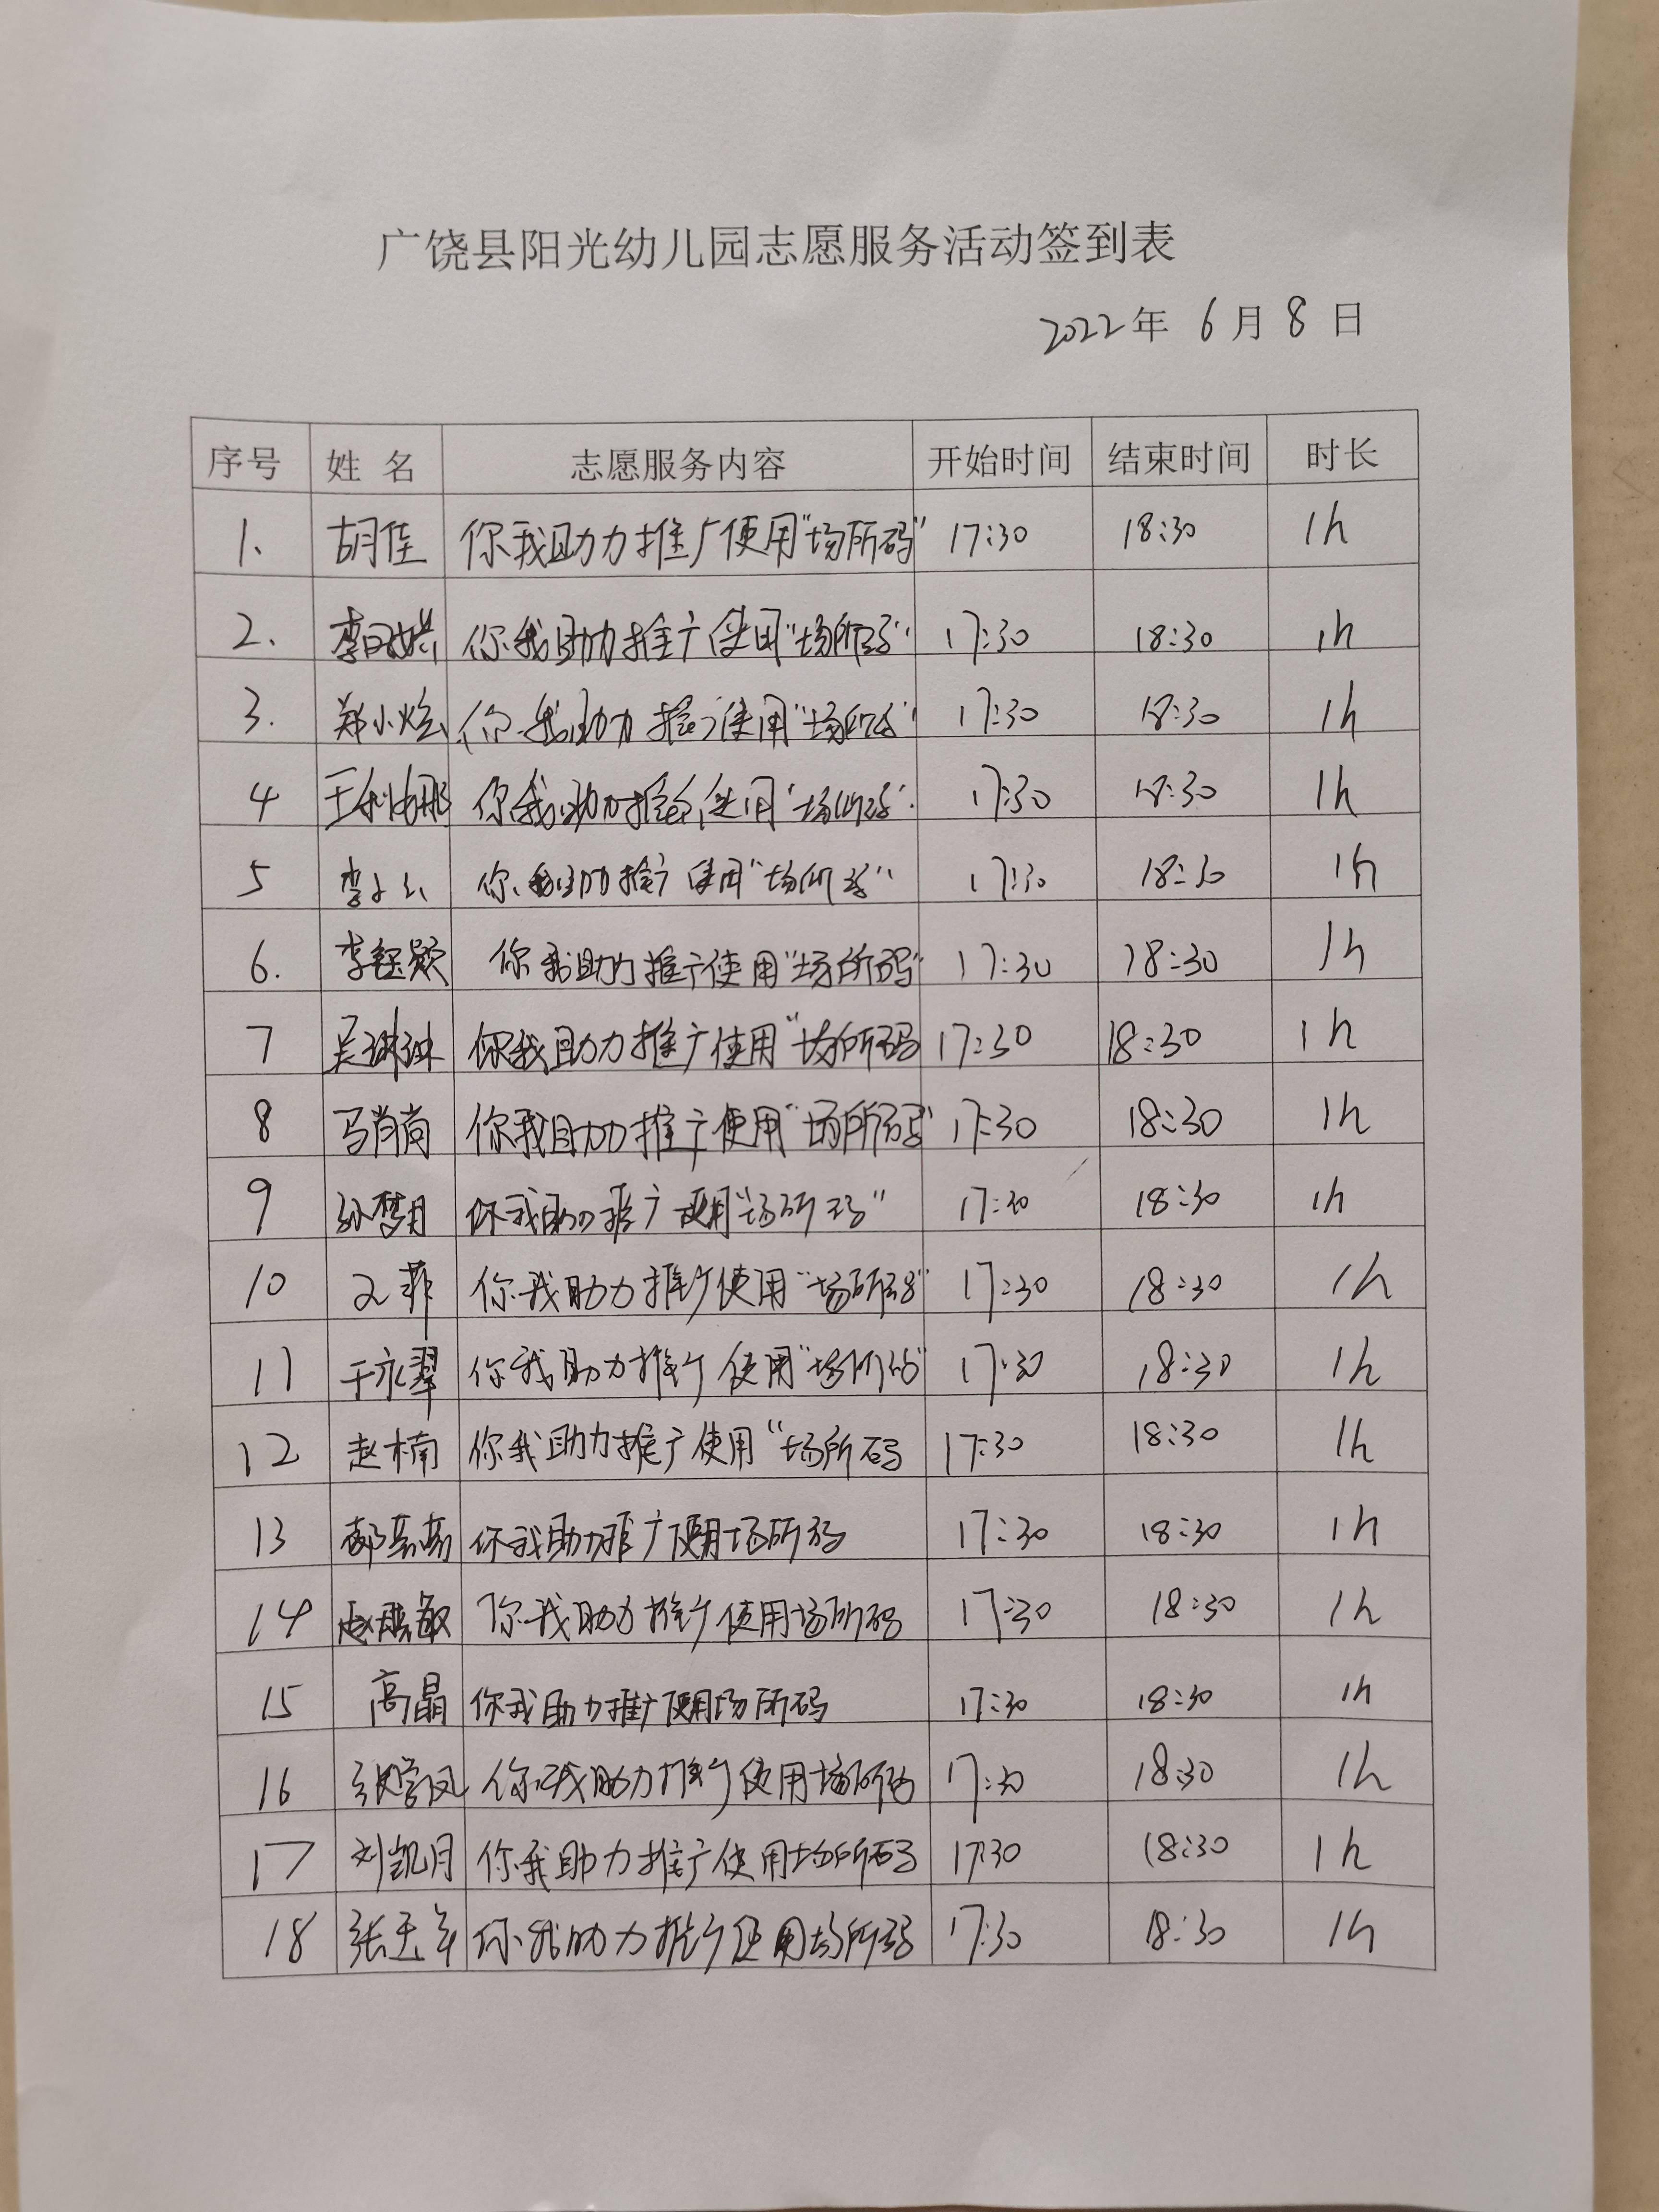 广饶县阳光幼儿园志愿服务活动签到表
2022年 6月8日
序号 姓名 志愿服务内容 开始时间 结束时间 时长
1. 胡佳 你我助力推广使用"场所码" 17:30 18:30 1h
2. 你我助力推广使用"场所码" 17:30 18:30 1h
3. 郑小炫 你我助力推广使用"场所码" 17:30 18:30 1h
4 王利娜 你我助力推广使用"场所码" 17:30 18:30 1h
5 你我助力推广使用"场所码" 17:30 18:30 1h
6. 你我助力推广使用"场所码" 17:30 18:30 1h
7 吴琳琳 你我助力推广使用"场所码 17:30 18:30 1h
8 马肖尚 你我助力推广使用"场所码" 17:30 18:30 1h
9 孙梦月 你我助力推广使用"场所码" 17:30 18:30 1h
10 菲 你我助力推广使用"场所码" 17:30 18:30 1h
11 于永翠 你我助力推广使用"场所码" 17:30 18:30 1h
12 赵楠 你我助力推广使用"场所码 17:30 18:30 1h
13 你我助力推广使用场所码 17:30 18:30 1h
14 你我助力推广使用场所码 17:30 18:30 1h
15 高晶 你我助力推广使用场所码 17:30 18:30 1h
16 你我助力推广使用场所码 17:30 18:30 1h
17 刘凯月 你我助力推广使用场所码 17:30 18:30 1h
18 张 你我助力推广使用场所码 17:30 18:30 1h